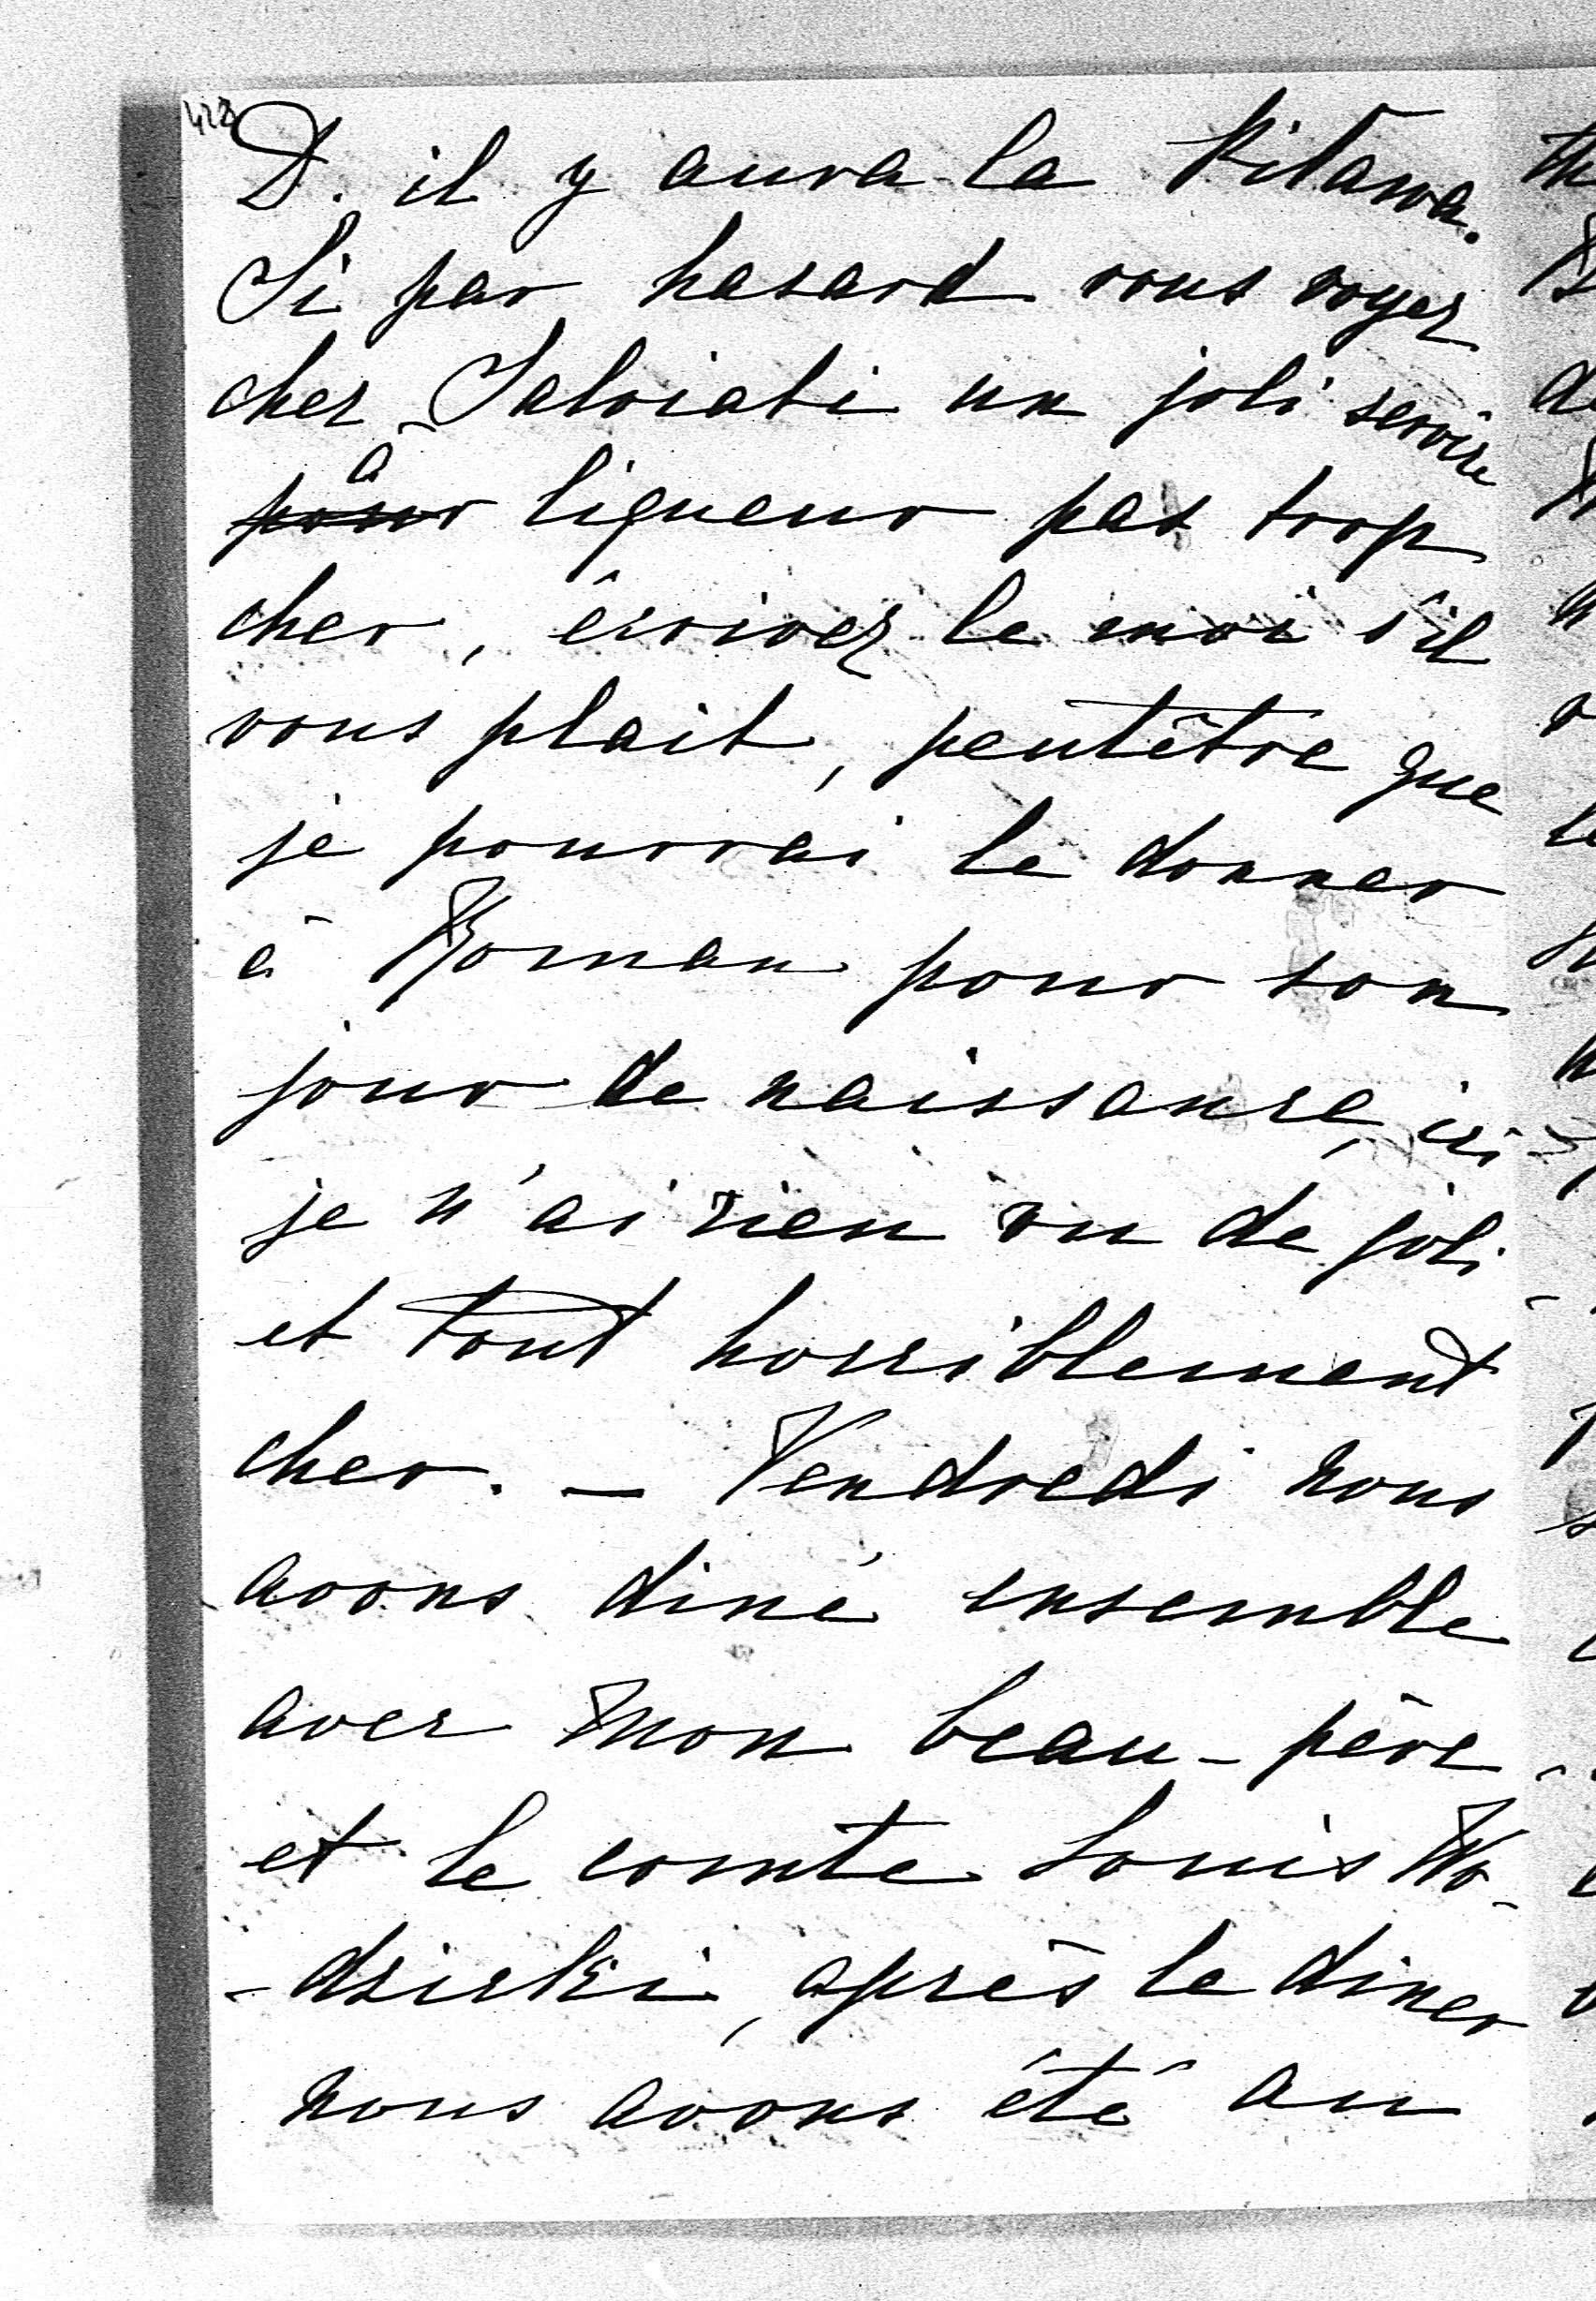 428
D. il y aura la Kitawa.
Si par hasard vous voyez
chez Salviati un joli service
à
pour liqueur pas trop
cher, écrivez le moi s'il
vous plait, peutêtre que
je pourrai le donner
à Roman pour son
jour de naissance, ici
je n'ai rien vu de joli
et tout horriblement
cher. — Vendredi nous
avons diné ensemble
avec mon beau-père
et le comte Louis Wo-
-dzicki, après le diner
nous avons été au